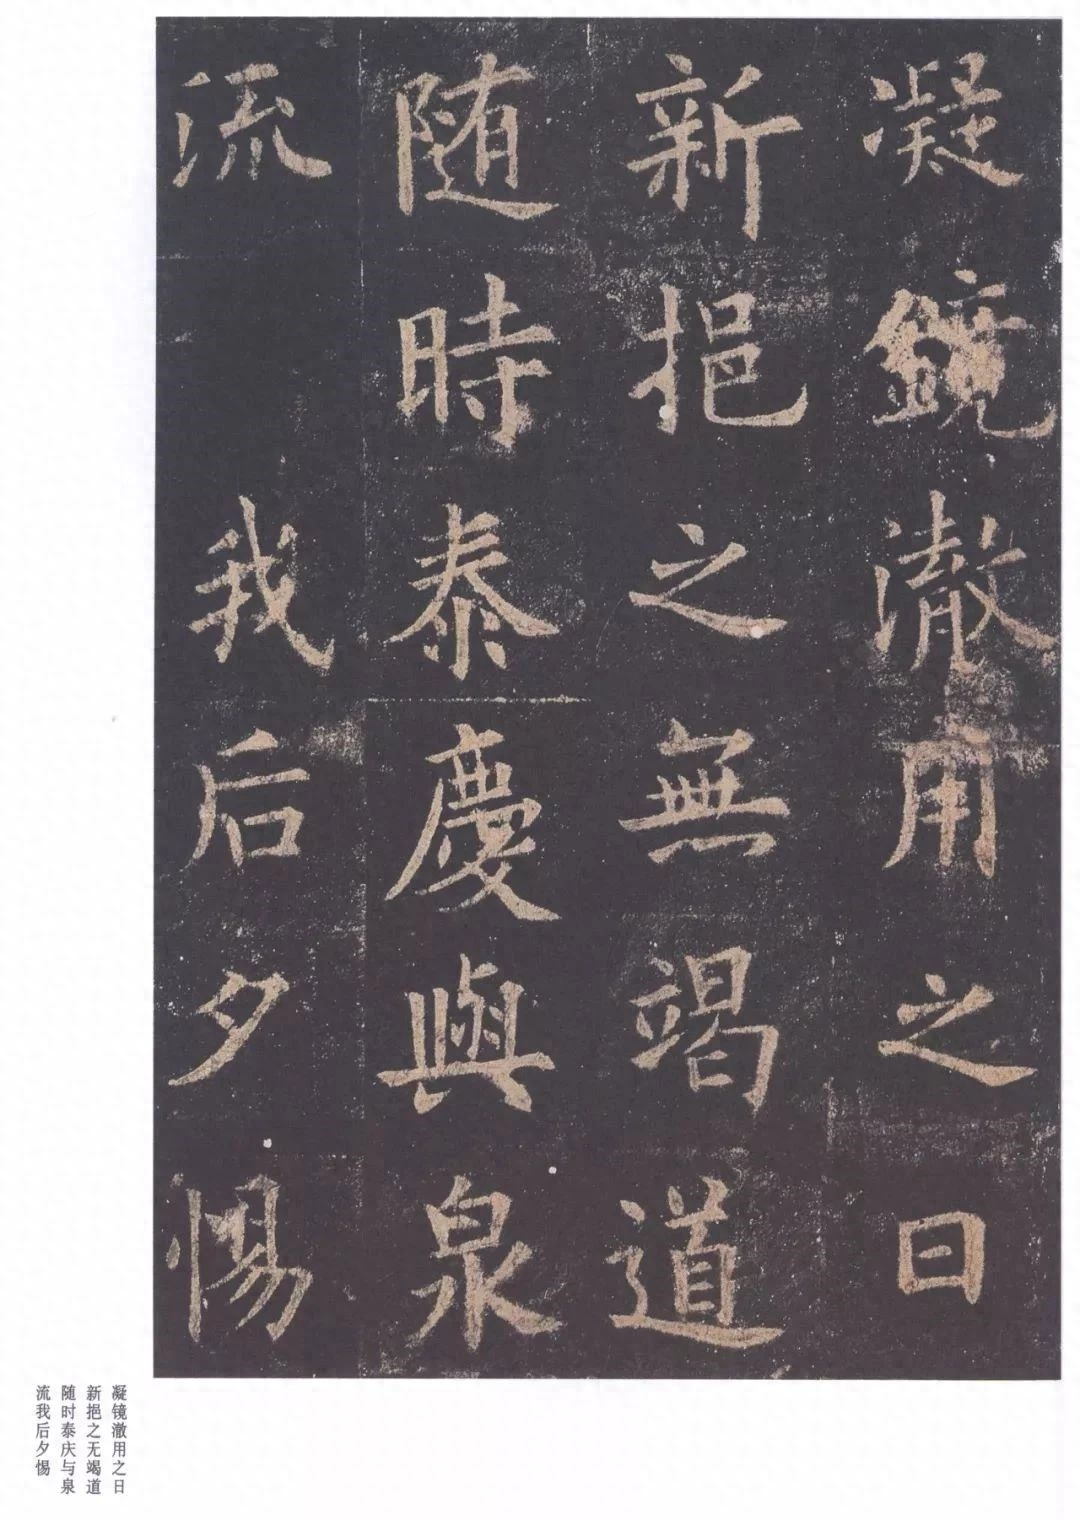 凝鏡澈用之日
新挹之無竭道
随時泰慶與泉
流我后夕惕
凝镜澈用之日
新挹之无竭道
随时泰庆与泉
流我后夕惕